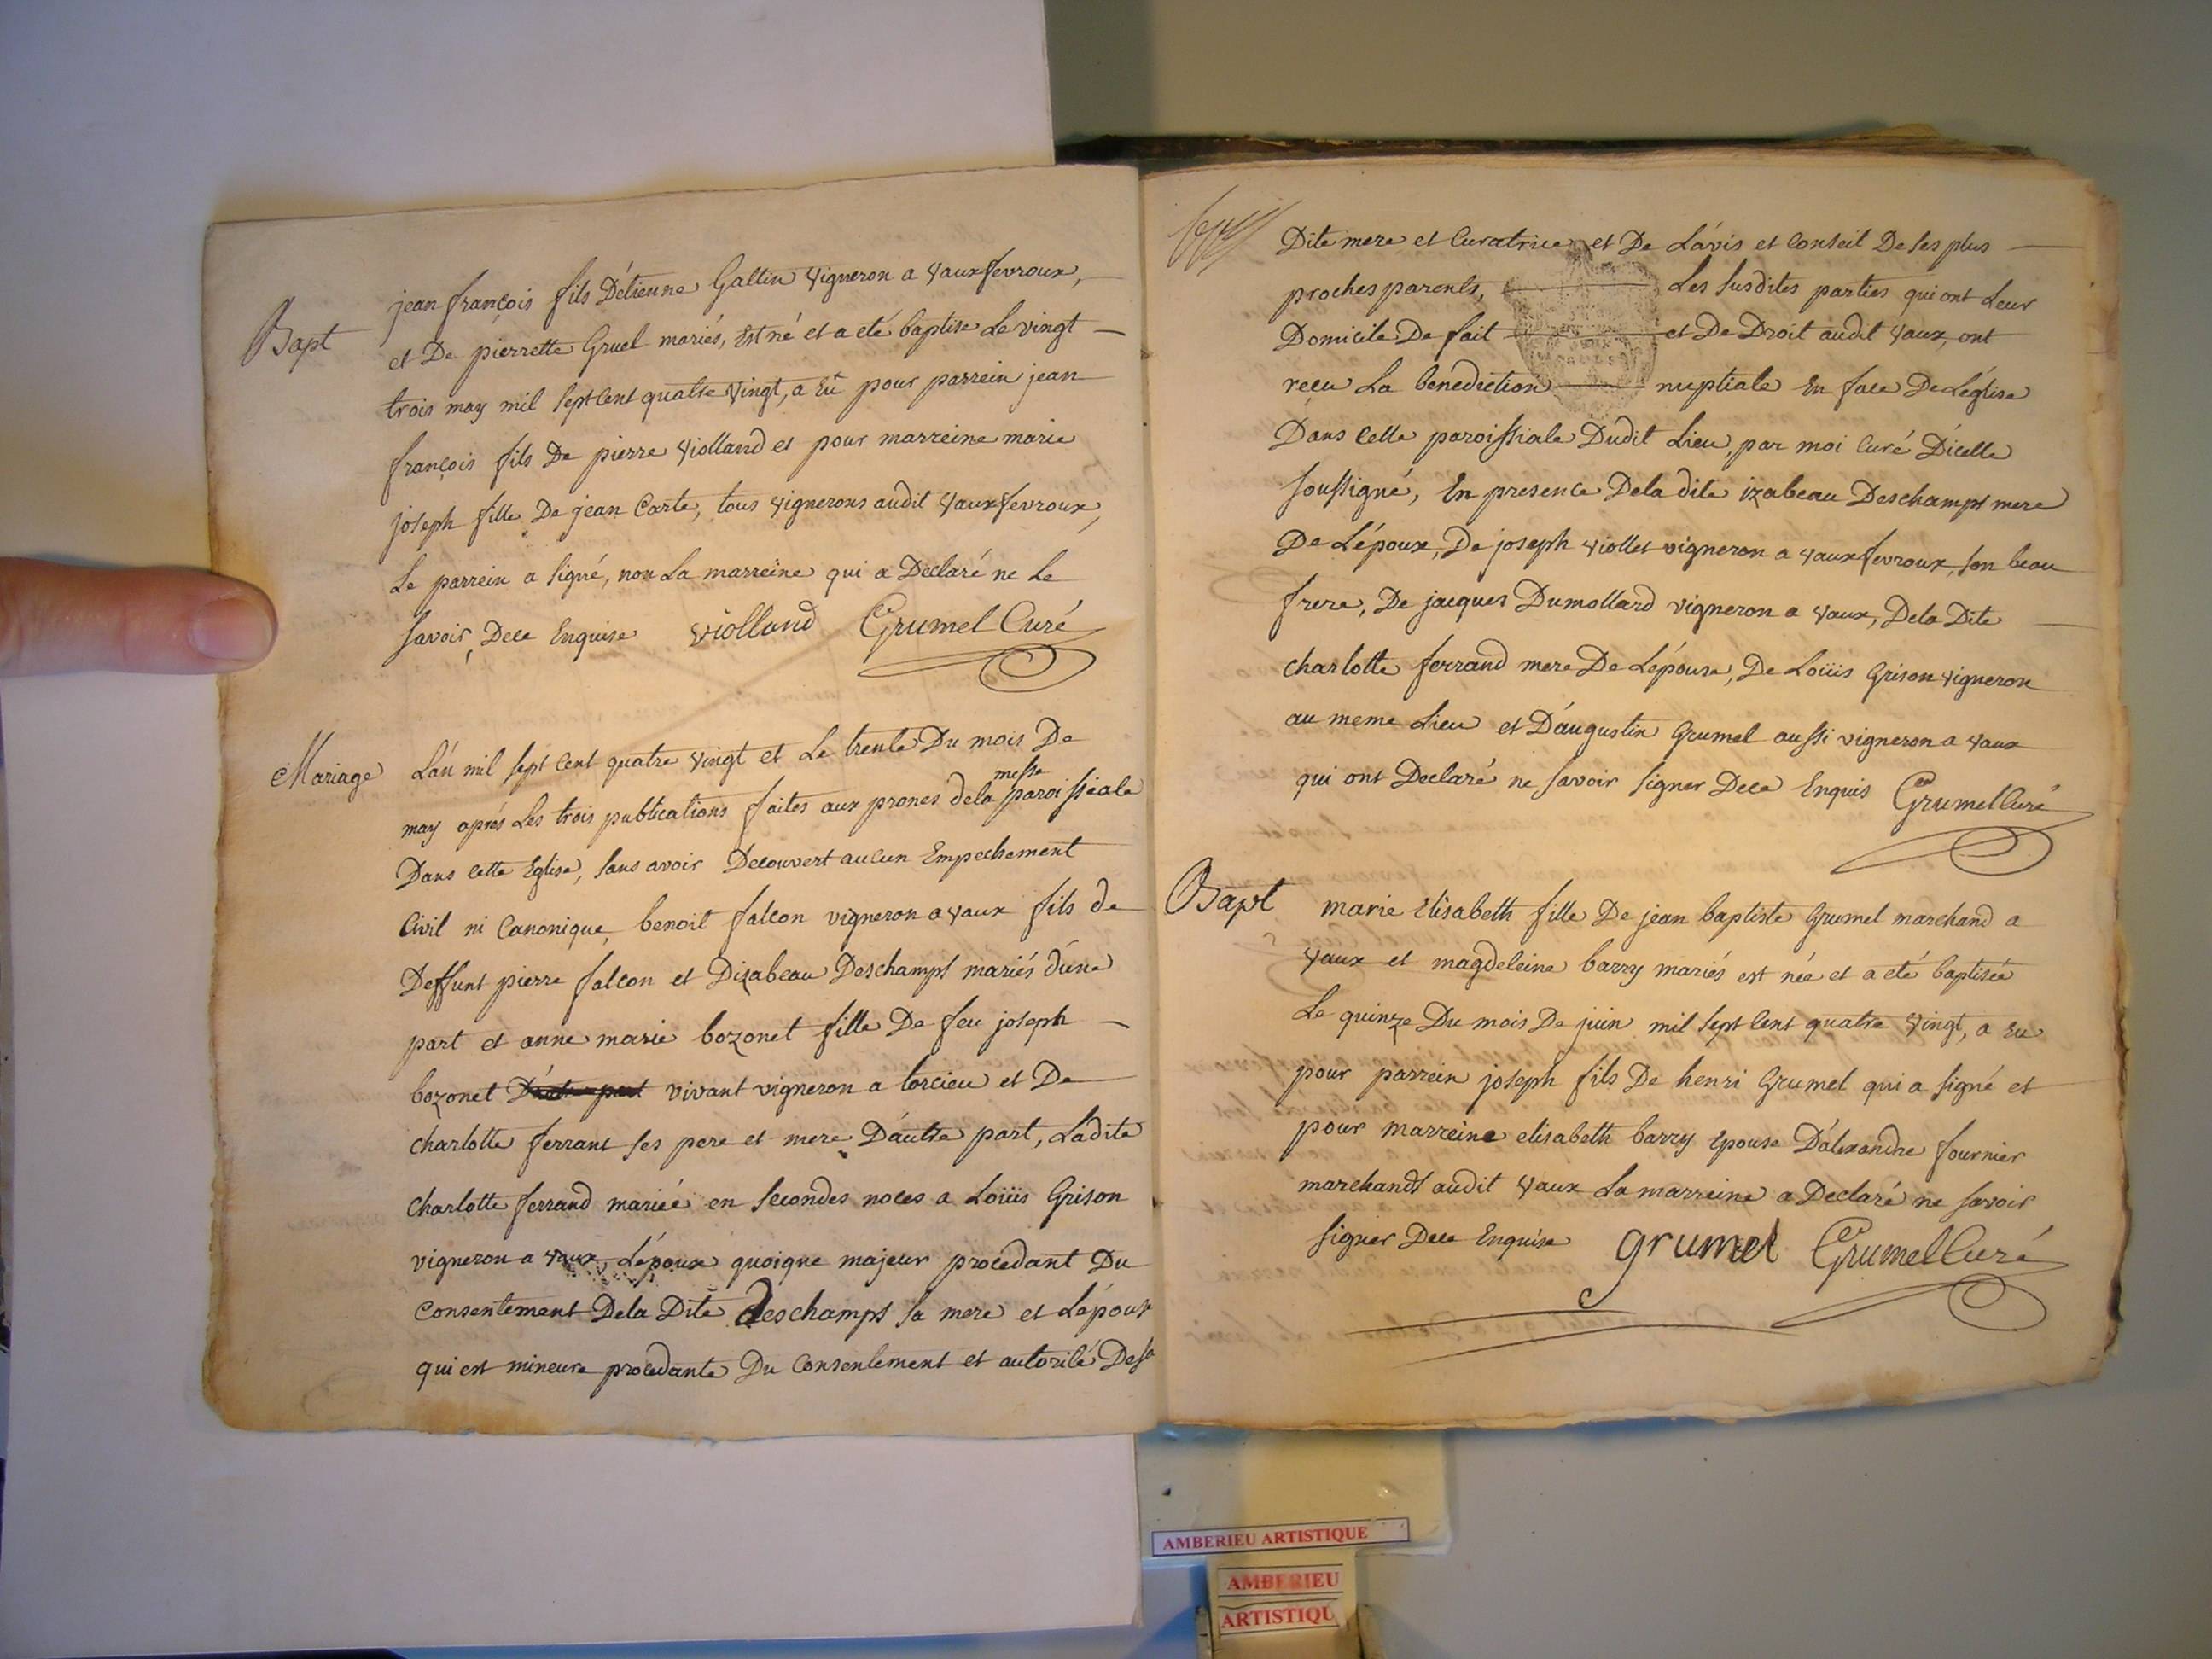 Bapt
jean françois fils D'étienne Galtin vigneron a vauxfevroux,
et De pierrette Gruel mariés, Est né et a eté baptisé Le vingt
trois may mil sept cent quatre vingt, a Eu pour parrein jean
françois fils De pierre violland et pour marreine marie
joseph fille De jean Carte, tous vignerons audit vauxfevroux,
Le parrein a signé, non La marreine qui a Declaré ne Le
savoir, Dece Enquise violland Grumel Curé
Mariage
L'an mil sept cent quatre vingt et Le trente Du mois De
may aprés Les trois publications faites aux prones dela messe paroissiale
Dans cette Eglise, sans avoir Decouvert aucun Empechement
Civil ni Canonique, benoit falcon vigneron a vaux fils de
Deffunt pierre falcon et Dizabeau Deschamps mariés d'une
part et anne marie bozonet fille De feu joseph
bozonet vivant vigneron a torcieu et De
charlotte ferrant ses pere et mere D'autre part, Ladite
Charlotte ferrand mariée en secondes noces a Loüis Grison
vigneron a vaux, L'époux quoique majeur procedant Du
Consentement Dela Dite Deschamps sa mere et L'épouse
qui est mineure procedante Du Consentement et autorité Desa
Dite mere et Curatrice et De L'avis et Conseil De ses plus
proches parents, Les susdites parties qui ont Leur
Domicile De fait et De Droit audit vaux, ont
reçu La benediction nuptiale En face De L'église
Dans cette paroissiale Dudit Lieu, par moi Curé D'icelle
soussigné, En presence Dela dite izabeau Deschamps mere
De L'époux, De joseph viollet vigneron a vauxfevroux, son beau
frere, De jacques Dumollard vigneron a vaux, Dela Dite
charlotte ferrand mere De L'épouse, De Loüis Grison vigneron
au meme Lieu et D'augustin Grumel aussi vigneron a vaux
qui ont Declaré ne savoir signer Dece Enquis Grumel Curé
Bapt
marie Elisabeth fille De jean baptiste Grumel marchand a
vaux et magdeleine barry mariés est née et a eté baptisée
Le quinze Du mois De juin mil sept cent quatre vingt, a Eu
pour parrein joseph fils De henri Grumel qui a signé et
pour marreine elisabeth barry Epouse D'alexandre fournier
marchands audit vaux La marreine a Declaré ne savoir
signer Dece Enquise grumel Grumel Curé
AMBERIEU ARTISTIQUE
AMBERIEU
ARTISTIQU